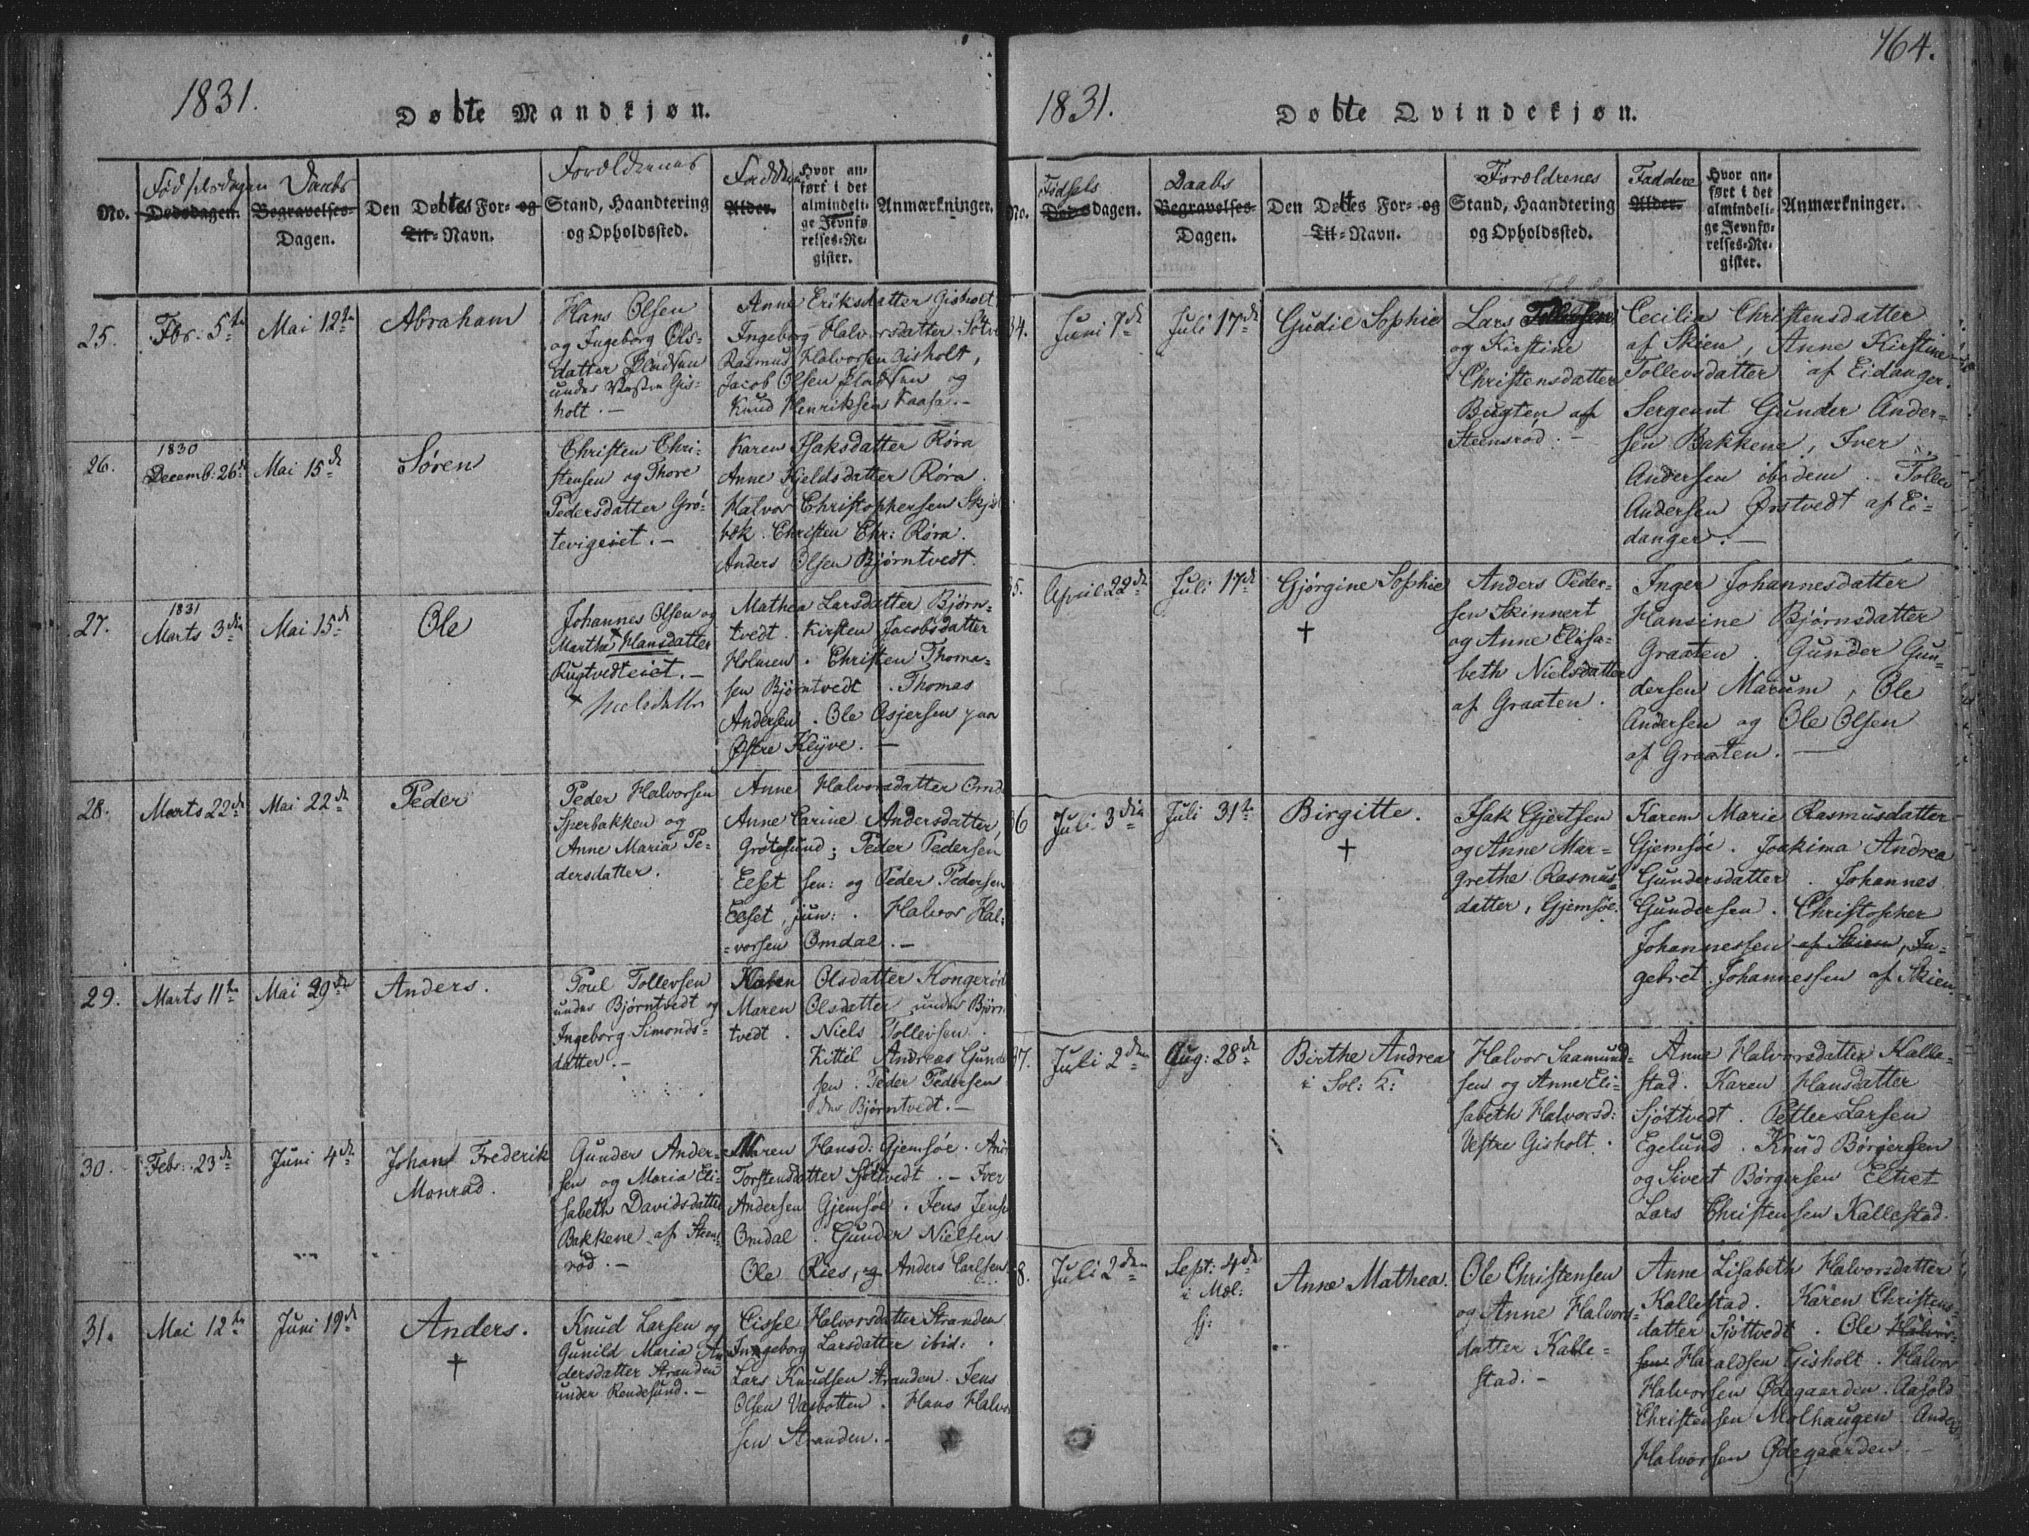 1831.
Døbte Mandkjøn.
Forældrenes
Fødselsdagen
Daabs
Hvor an-
ført i det
almindeli-
ge Jevnfø-
relses-Re-
gister.
No.
Dødsdagen.
Begravelses-
Dagen.
Den Døbtes For- og
Til-Navn.
Stand, Haandtering
og Opholdssted.
Alder.
Anmærkninger.
25.
Fbr. 5te
Mai 12te
Abraham
Hans Olsen
og Ingeborg Ols-
datter
under Vestre Gis-
holt. -
Anne Eriksdatter Gisholt
Ingeborg Halvorsdatter
Rasmus Halvorsen Gisholt,
Jacob Olsen og
Knud Henriksen Kaasa. -
26.
1830
Decemb: 26de
Mai 15de
Søren
Christen Chri-
stensen og Thore
Pedersdatter Grø-
tevigeiet. -
Karen Isaksdatter Røra
Anne Kjeldsdatter Røra.
Halvor Christophersen Skjel-
bek. Christen Chr: Røra.
Anders Olsen Bjørntvedt.
27.
1831
Marts 3die
Mai 15de
Ole
Johannes Olsen og
Martha Hansdatter
Rugtvedteiet. -
+ Nielsdatter
Mathea Larsdatter Bjørn-
tvedt. Kirsten Jacobsdatter
Holmen. Christen Thoma-
sen Bjørntvedt. Thomas
Andersen. Ole Asjersen paa
Østre Kleyve. -
28.
Marts 22de
Mai 22de
Peder
Peder Halvorsen
Sperbakken og
Anne Maria Pe-
dersdatter.
Anne Halvorsdatter Omd
Anne Carine Andersdatter,
Grøtesund; Peder Pedersen
Elset sen: og Peder Pedersen
Elset, jun: . Halvor Hal-
vorsen Omdal. -
29.
Marts 11te
Mai 29de
Anders.
Poul Tollevsen
under Bjørntvedt og
Ingeborg Simonds-
datter. -
Karen Olsdatter Kongerød
Maren Olsdatter under Bjørn
tvedt. Niels Tollevsen.
Kittil Andreas Gunde
sen. Peder Pedersen
Bjørntvedt. -
30.
Febr: 23de
Juni 4de
Johan Frederik
Monrad.
Gunder Ander-
sen og Maria Eli-
sabeth Davidsdatter
Bakkene af Steens-
rød. -
Maren Hansd: Gjemsøe. Anne
Torstensdatter Sjøtvedt. - Iver
Andersen Gjemsøe. Jens Jense
Omdal. Gunder Nielsen
Ole Ries, og Anders Carlsen
31.
Mai 12te
Juni 19de
Anders.
+
Knud Larsen og
Gunild Maria An
dersdatter Stranden
under Rendesund. -
Cissel Halvorsdatter Stranden
Ingeborg Larsdatter ibid: .
Lars Knudsen Stranden. Jens
Olsen Vasbotten. Hans Halvor
sen Stranden. -
164.
1831.
Døbte Qvindekjøn.
Fødsels
Daabs
Forældrenes
Faddere
Hvor an-
ført i det
almindeli-
ge Jevnfø-
relses-Re-
gister.
No.
Dødsdagen.
Begravelses-
Dagen.
Den Døbtes For- og
Til-Navn.
Stand, Haandtering
og Opholdssted.
Alder.
Anmærkninger.
34.
Juni 7de
Juli 17de
Gudil Sophie
Lars
og Kirstine
Christensdatter
Bugten af
Steensrød. -
Cecilia Christensdatter
af Skien, Anne Kirstine
Tollevsdatter af Eidanger.
Sergeant Gunder Ander-
sen Bakkene, Iver
Andersen ibidem. Tollev
Andersen Ørstvedt af Ei-
danger. -
35.
April 22de
Juli 17de
Gjørgine Sophie
+
Anders Peder-
sen Skinnert
og Anne Elisa-
beth Nielsdatter
af Graaten.
Inger Johannesdatter
Hansine Bjørnsdatter
Graaten. Gunder Gun-
dersen Marum, Ole
Andersen og Ole Olsen
af Graaten. -
36
Juli 3die
Juli 31te
Birgitte.
+
Isak Gjertsen
og Anne Mar-
grethe Rasmus-
datter, Gjemsøe.
Karem Marie Rasmusdatter
Gjemsøe. Joakima Andrea
Gundersdatter. Johannes
Gundersen. Christopher
Johannessen af Skien, In-
gebret Johannessen af Skien.
37.
Juli 2den
Aug: 28de
Birthe Andrea
i Sol: K:
Halvor Saamund-
sen og Anne Eli-
sabeth Halvorsd:
Vestre Gisholt.
Anne Halvorsdatter Kalle-
stad. Karen Hansdatter
Sjøttvedt. Petter Larsen
Egelund. Knud Børgersen
og Sivert Børgersen Eltvet
Lars Christensen Kallestad.
38.
Juli 2den
Sept: 4de
i Mæl:
Anne Mathea.
Ole Christensen
og Anne Halvors-
datter Kalle-
stad. -
Anne Lisabeth Halvorsdatter
Kallestad. Karen Christens-
datter Sjøttvedt. Ole Halvor-
sen Haraldsen Gisholt. Halvor
Halvorsen Ødegaarden. Aasold
Christensen Molhaugen. Anders
Halvorsen Ødegaarden. -